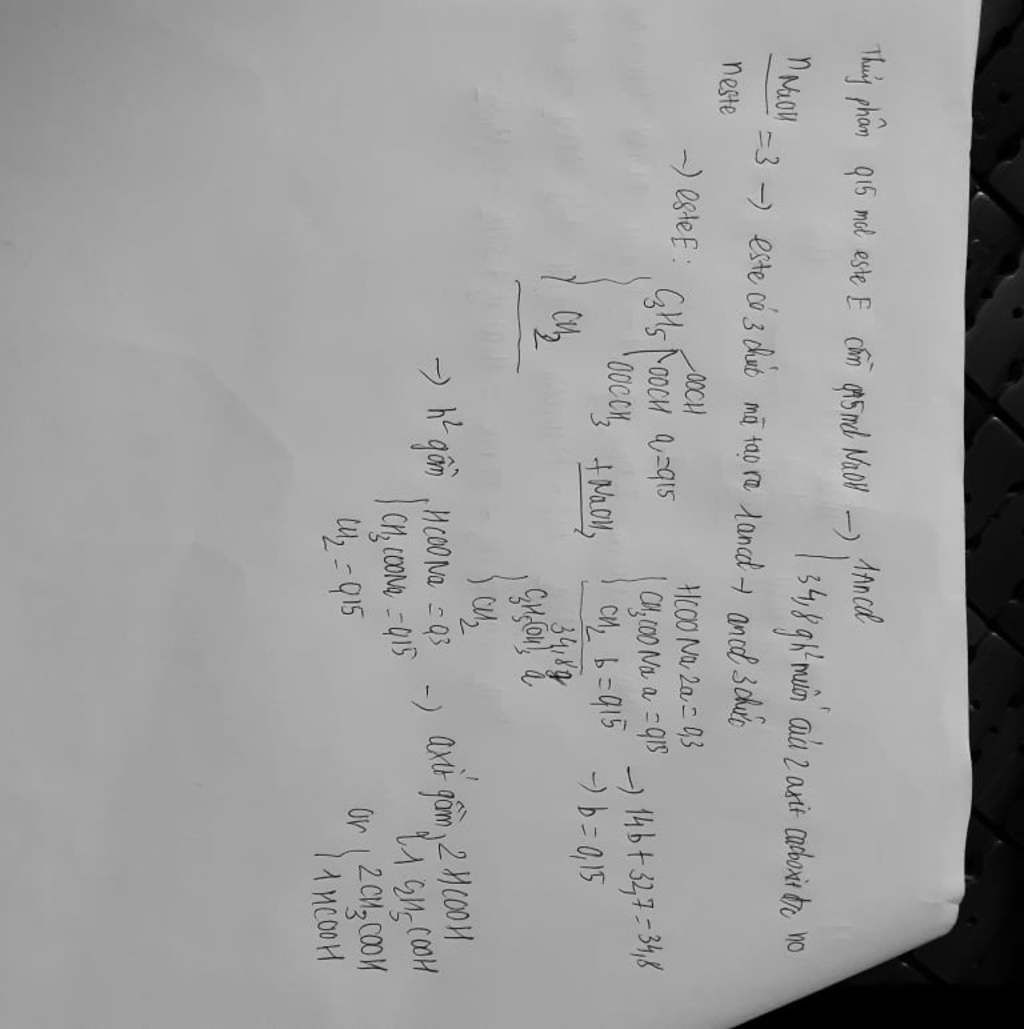 Thuỷ phân 0,15 mol este E cần 0,45 mol NaOH → { 1 Ancol
34,8 g h² muối của 2 axit cacboxilic no
nNaOH / neste = 3 → este có 3 chức mà tạo ra 1 ancol → ancol 3 chức
→ este E: { C3H5 OOCH
OOCH a = 0,15
OOCCH3
CH2
+ NaOH →
{ HCOONa 2a = 0,3
CH3COONa a = 0,15
CH2 b = 0,15
34,8g
{ C3H5(OH)3 a
CH2
→ 14b + 32,7 = 34,8
→ b = 0,15
→ h² gồm { HCOONa = 0,3
CH3COONa = 0,15
CH2 = 0,15
→ axit gồm { 2 HCOOH
1 C2H5COOH
or { 2CH3COOH
1 HCOOH